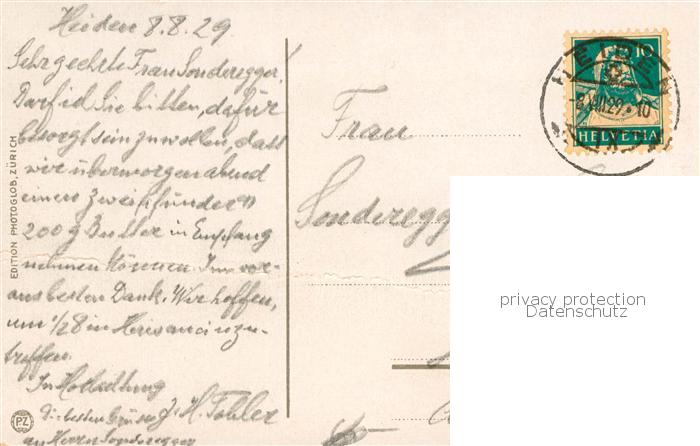 Heiden 8.8.29
Sehr geehrte Frau Sonderegger.
Darf ich Sie bitten, dafür
besorgt sein zu wollen, dass
wir übermorgen abend
einen Zweipfünder u
200 g Butter in Empfang
nehmen können. Im vor-
aus besten Dank. Wir hoffen,
um 1/28 in Herisau einzu-
treffen.
In Hochachtung
die besten Grüsse H. Tobler
an Herrn Sonderegger
EDITION PHOTOGLOB, ZÜRICH
PZ
Frau
Sonderegg
10
HELVETIA
HEIDEN
-8.VIII.29. 10
privacy protection
Datenschutz